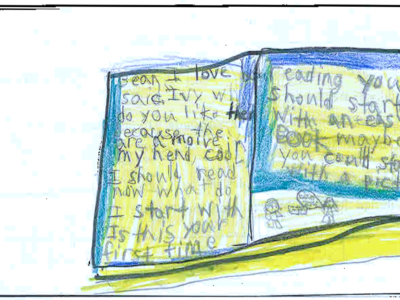 yean I love
said Ivy, w
do you like them
because the
are a moive in
my head cool
I should read
now what do
I start with
Is this your
first time
eading you
should start
with an eas
Book maybe
you could st
with a pict